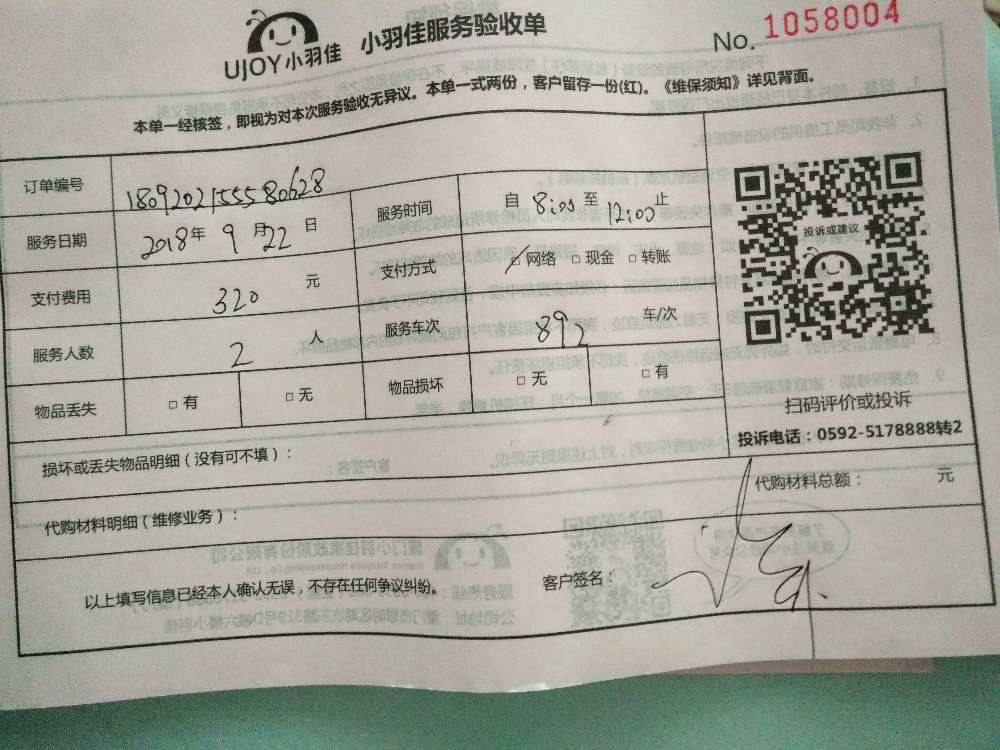 UJOY小羽佳 小羽佳服务验收单 No. 1058004
本单一经核签，即视为对本次服务验收无异议。本单一式两份，客户留存一份(红)。《维保须知》详见背面。
订单编号 18092021555580628
服务日期 2018年9月22日 服务时间 自8:00至12:00止
支付费用 320元 支付方式 □网络 □现金 □转账
服务人数 2人 服务车次 892 车/次
物品丢失 □有 □无 物品损坏 □无 □有
投诉或建议
扫码评价或投诉
投诉电话：0592-5178888转2
损坏或丢失物品明细（没有可不填）：
代购材料明细（维修业务）： 代购材料总额： 元
以上填写信息已经本人确认无误，不存在任何争议纠纷。 客户签名：